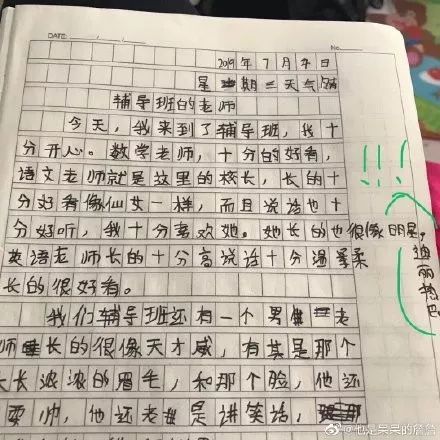 DATE
No.
2019年7月7日
星期三天气
辅导班的老师
今天,我来到了辅导班,我十
分开心。数学老师,十分的好看,
语文老师就是这里的校长,长的十
分好看像仙女一样,而且说话也十
分好听,我十分喜欢她。她长的也很像明星,
迪丽热巴
英语老师长的十分高说话十分温柔
长的很好看。
我们辅导班还有一个男老
师长的很像天才威,有其是那个
长长浓浓的眉毛,和那个脸,他还
耍帅,他还老是讲笑话,
!!!
@也是杲杲的詹詹